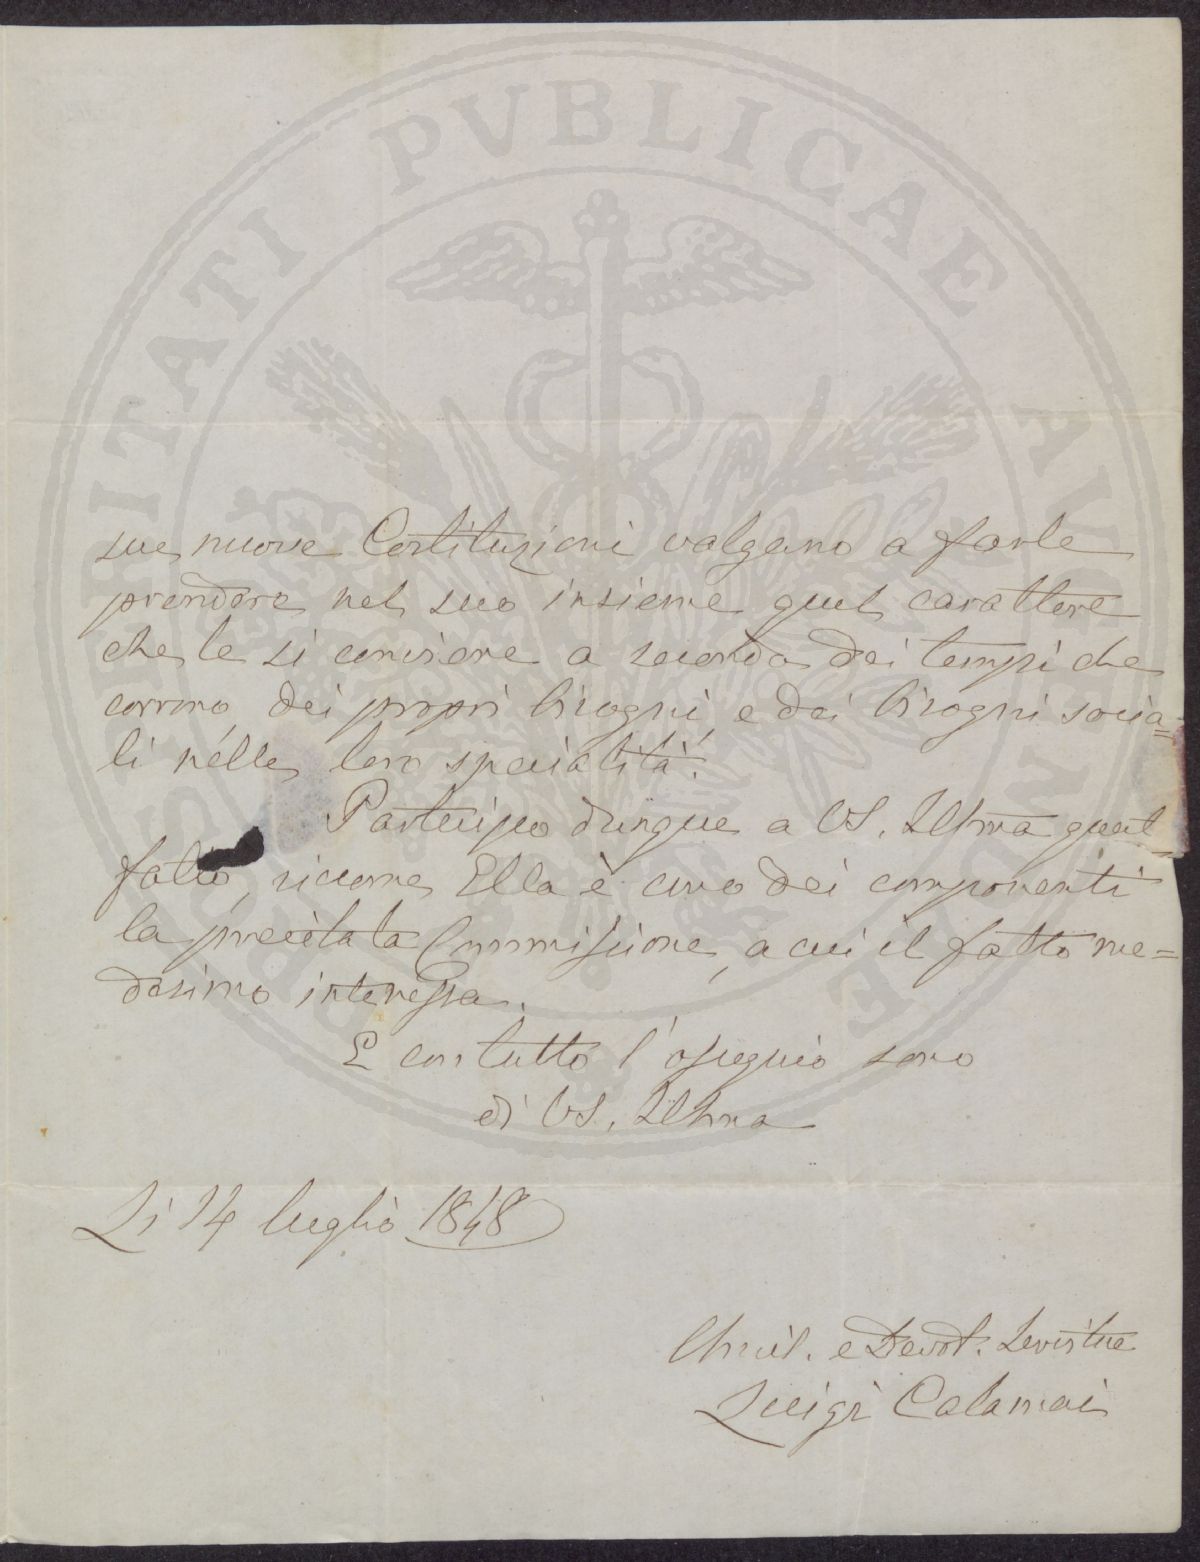 PROSPERITATI PVBLICAE AVGENDAE
sue nuove Costituzioni valgano a farle
prendere nel suo insieme quel carattere
che le si conviene a seconda dei tempi che
corrono, dei propri bisogni, e dei bisogni socia=
li nelle loro specialità.
Partecipo dunque a VS. Illma quel
fatto, siccome Ella è uno dei componenti
la precitata Commissione, a cui il fatto me=
desimo interessa.
E con tutto l'ossequio sono
di VS. Illma
Li 14 luglio 1848
Umil. e Devot. Servitue
Luigi Calamai